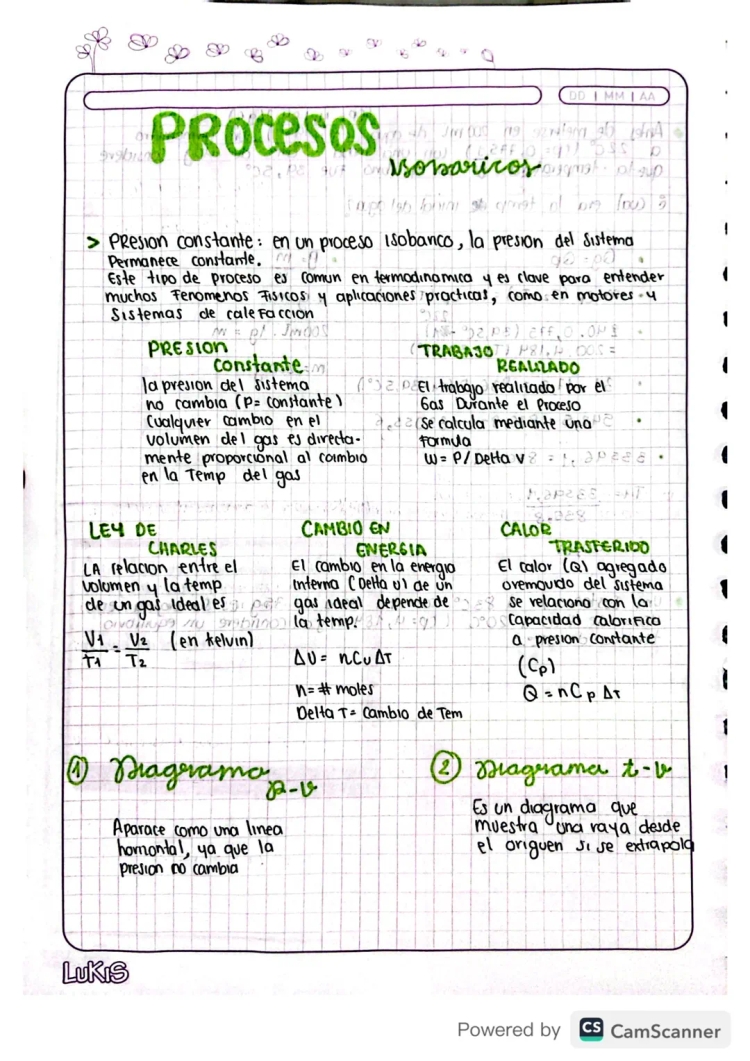 DD | MM | AA
PROCESOS
isobaricos
> PResion constante: en un proceso isobarico, la presion del sistema
Permanece constante.
Este tipo de proceso es comun en termodinamica y es clave para entender
muchos Fenomenos Fisicos y aplicaciones practicas, como en motores y
Sistemas de caleFaccion
PRESION
constante
la presion del sistema
no cambia (P= constante)
Cualquier cambio en el
volumen del gas es directa-
mente proporcional al cambio
en la Temp del gas
TRABAJO
REALIZADO
El trabajo realizado por el
Gas Durante el Proceso
Se calcula mediante una
Formula
W = P/ Delta V
LEY DE
CHARLES
LA relacion entre el
volumen y la temp
de un gas ideal es
V1/T1 = V2/T2 (en kelvin)
CAMBIO EN
ENERGIA
El cambio en la energia
Interna (Delta U) de un
gas ideal depende de
la temp.
ΔU = nCv ΔT
n = # moles
Delta T = Cambio de Tem
CALOR
TRASFERIDO
El calor (Q) agregado
o removido del sistema
se relaciona con la
capacidad caloriFica
a presion constante
(Cp)
Q = nCp ΔT
① Diagrama
p-v
Aparace como una linea
horizontal, ya que la
presion no cambia
② Diagrama t-v
Es un diagrama que
muestra una raya desde
el origuen si se extrapola
LUKIS
Powered by CS CamScanner